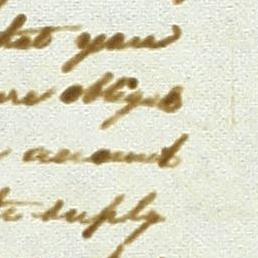 that your
obliged
account
to supply